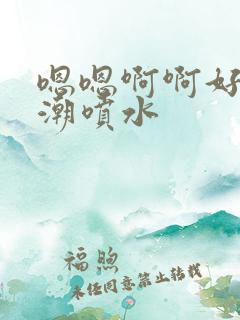 嗯嗯啊啊好
潮喷水
福煦
未经同意禁止转载